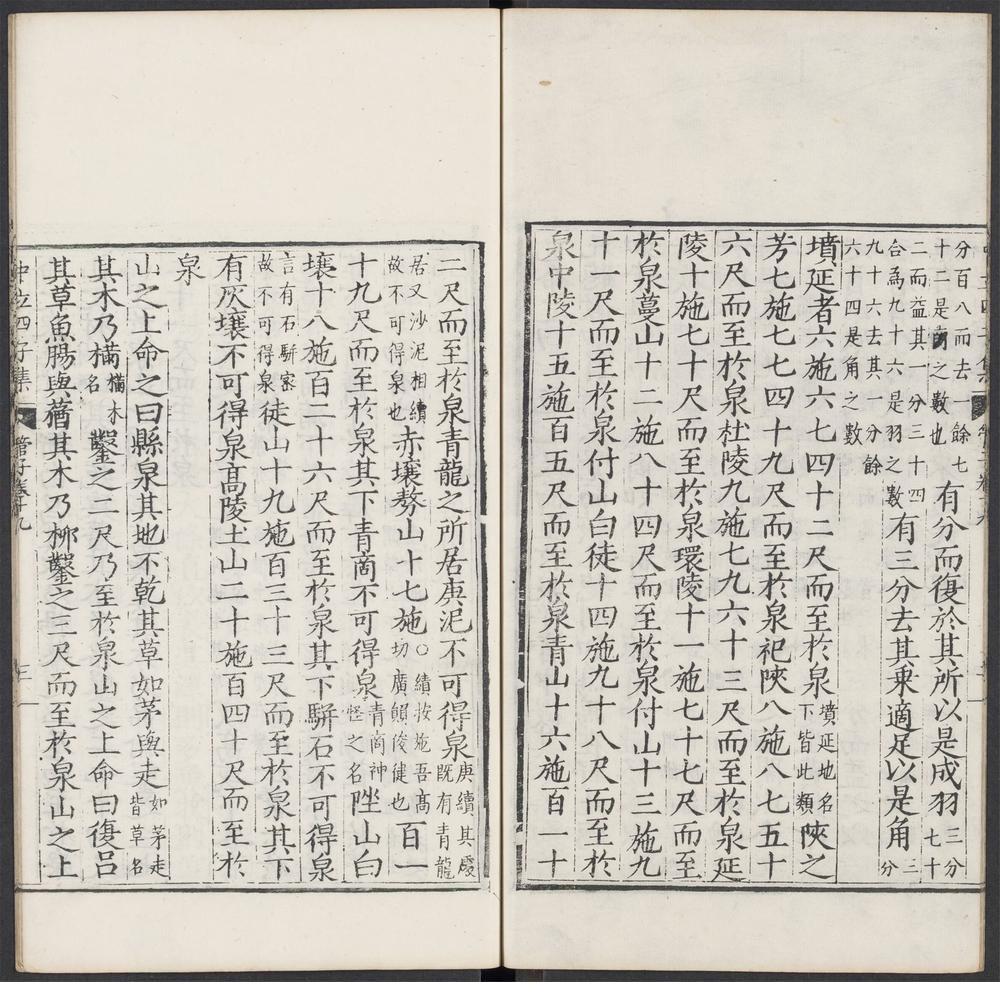 分百八而去一餘七
十二是商之數也
有分而復於其所以是成羽
三分
七十
二而益其一分三十四
合為九十六是羽之數
有三分去其乗適足以是角
三
分
九十六去其一分餘
六十四是角之數
墳延者六施六七四十二尺而至於泉
墳延地名
下皆此類
陝之
芳七施七七四十九尺而至於泉祀陝八施八七五十
六尺而至於泉杜陵九施七九六十三尺而至於泉延
陵十施七十尺而至於泉環陵十一施七十七尺而至
於泉蔓山十二施八十四尺而至於泉付山十三施九
十一尺而至於泉付山白徒十四施九十八尺而至於
泉中陵十五施百五尺而至於泉青山十六施百一十
二尺而至於泉青龍之所居庚泥不可得泉
庚續其處
既有青龍
居又沙泥相續
故不可得泉也
赤壤勢山十七施
○續按吾高
切廣韻俊健也
百一
十九尺而至於泉其下青商不可得泉
青商神
怪之名
陛山白
壤十八施百二十六尺而至於泉其下駢石不可得泉
言有石駢密
故不可得泉
徒山十九施百三十三尺而至於泉其下
有灰壤不可得泉髙陵土山二十施百四十尺而至於
泉
山之上命之曰縣泉其地不乾其草如茅與走
如茅走
皆草名
其木乃樠
樠木
名
鑿之二尺乃至於泉山之上命曰復吕
其草魚腸與蕕其木乃栁鑿之三尺而至於泉山之上
中立四子集
管子卷十九
三